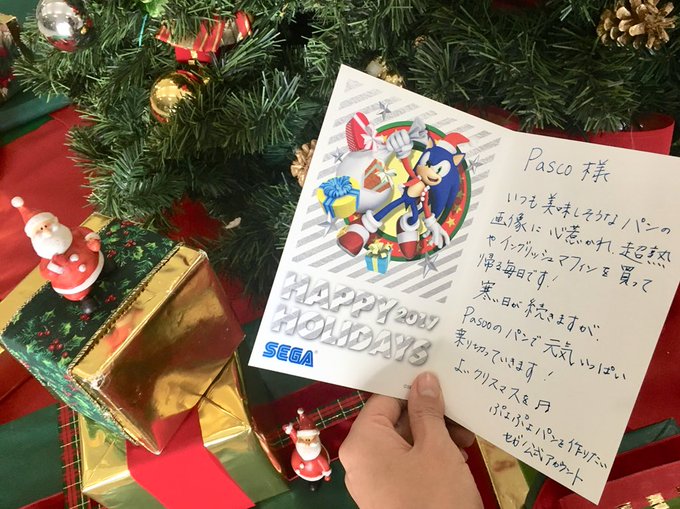 HAPPY 2017
HOLIDAYS
SEGA
Pasco 様
いつも美味しそうなパンの
画像に心惹かれ、超熟
やイングリッシュマフィンを買って
帰る毎日です!
寒い日が続きますが、
Pascoのパンで元気いっぱい
乗り切っていきます!
よいクリスマスを
ぷよぷよパンを作りたい
セガ公式アカウント